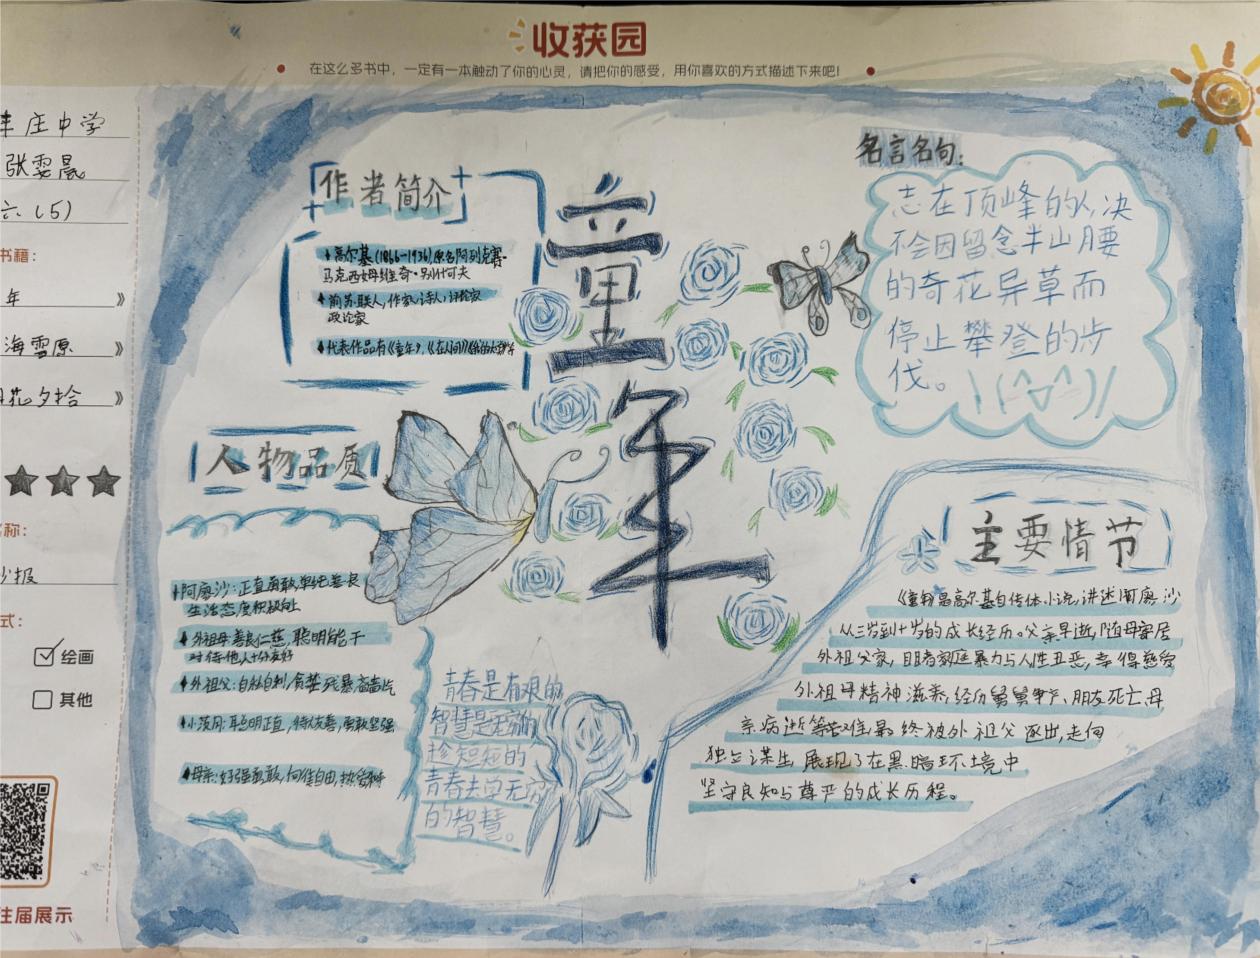 收获园
在这么多书中，一定有一本触动了你的心灵，请把你的感受，用你喜欢的方式描述下来吧！
庄中学
张雯晨
六（5）
书籍：
年》
海雪原》
花夕拾》
称：
抄报
式：
绘画
其他
往届展示
童年
作者简介
高尔基(1866-1936)原名阿列克赛·
马克西姆维奇·别什可夫
前苏联人，作家，诗人，评论家
政论家
代表作品有《童年》，《在人间》《我的大学》
人物品质
阿廖沙：正直勇敢，单纯善良
生活态度积极向上
外祖母：善良仁慈，聪明能干
对待他人十分友好
外祖父：自私自利，贪婪残暴
小茨冈：聪明正直，待人友善，勇敢坚强
母亲：好强勇敢，向往自由，热爱
青春是有限的
智慧是无穷的
趁短短的
青春去学无穷
的智慧。
名言名句：
志在顶峰的人，决
不会因留念半山腰
的奇花异草而
停止攀登的步
伐。
主要情节
《童年》是高尔基自传体小说，讲述阿廖沙
从三岁到十岁的成长经历。父亲早逝，随母寄居
外祖父家，目睹家庭暴力与人性丑恶，幸得慈爱
外祖母精神滋养，经历舅舅争产，朋友死亡，母
亲病逝等苦难，最终被外祖父逐出，走向
独立谋生，展现了在黑暗环境中
坚守良知与尊严的成长历程。